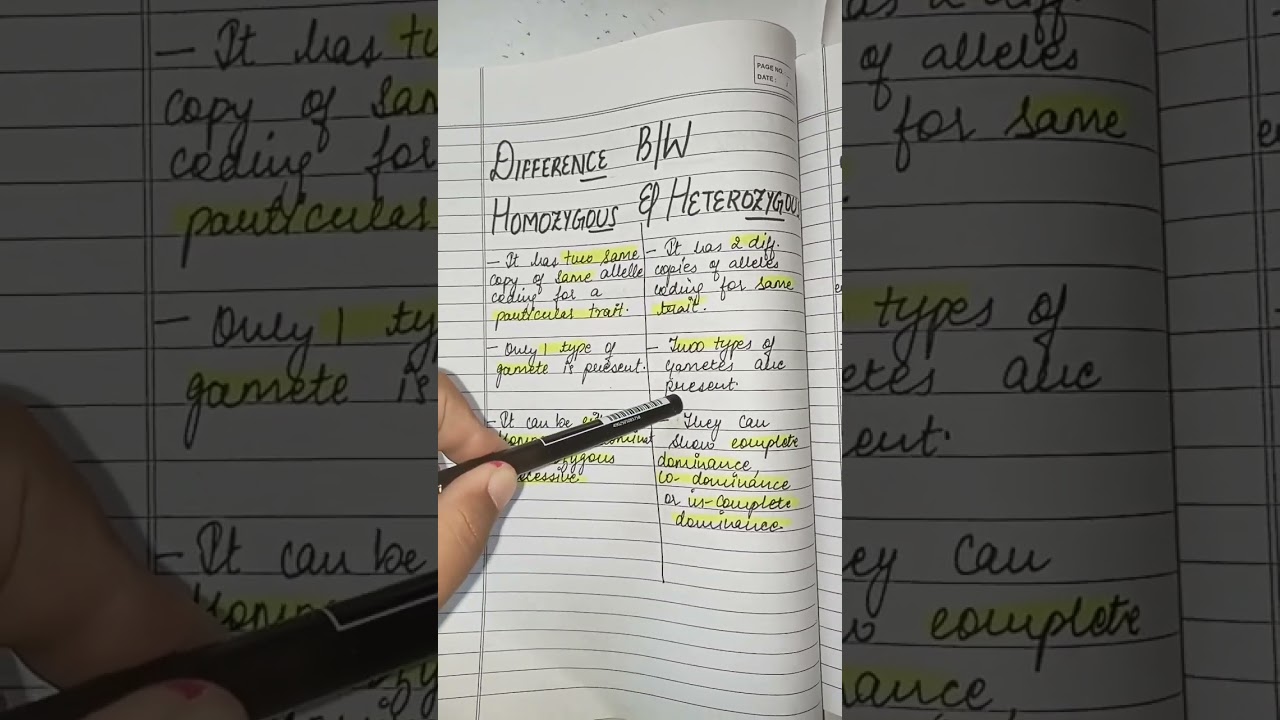 PAGE NO.
DATE :
DIFFERENCE B/W
HOMOZYGOUS & HETEROZYGOUS
- It has two same
copy of same allele
coding for a
particular trait.
- Only 1 type of
gamete is present.
- It can be
recessive.
- It has 2 diff.
copies of alleles
coding for same
trait.
- Two types of
gametes are
present.
- They can
show complete
dominance,
co-dominance
or in-complete
dominance.